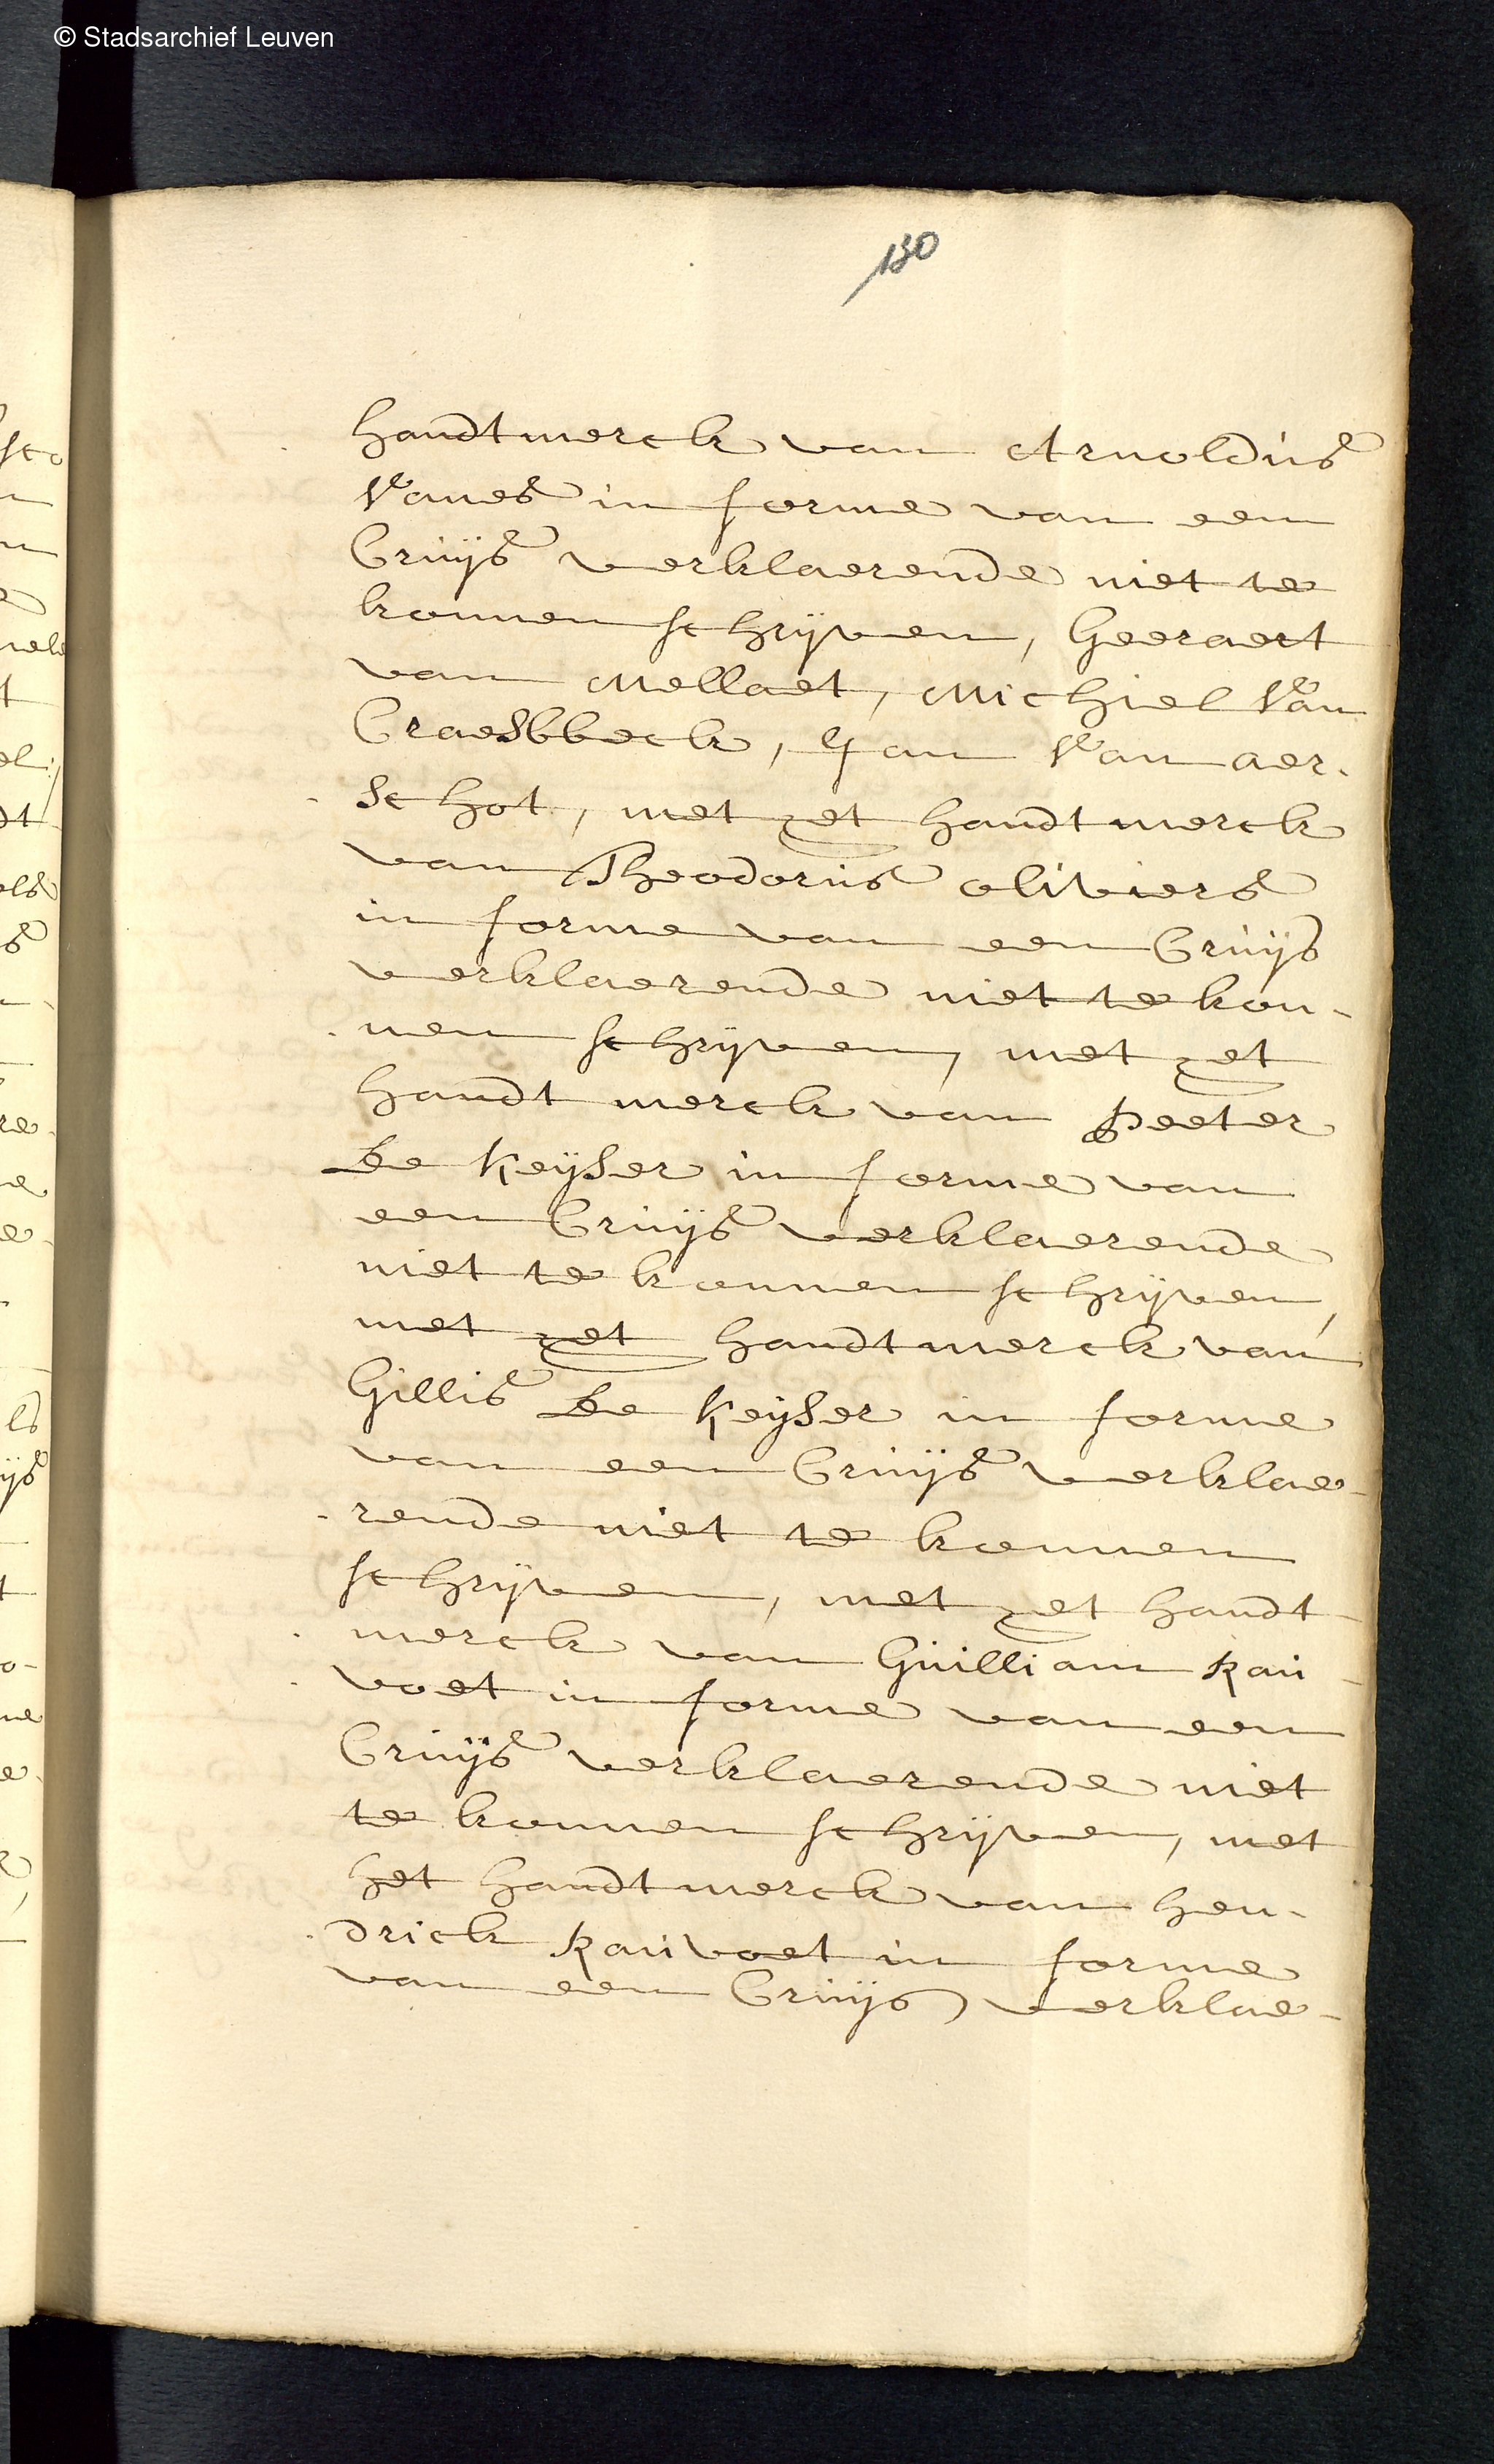 © Stadsarchief Leuven
130
handtmerck van Arnoldus
Vanes in forme van een
Cruijs verklaerende niet te
konnen schrijven, Geeraert
van Mellaet, Michiel Van
Craesbbeck, Jan Van aer-
schot, met het handtmerck
van Theodorus oliviers
in forme van een Cruijs
verklaerende niet te kon-
nen schrijven, met het
handt merck van Peeter
De Keijser in forme van
een Cruijs verklaerende
niet te konnen schrijven,
met het handtmerck van
Gillis De Keijser in forme
van een Cruijs verklae-
rende niet te konnen
schrijven, met het handt-
merck van Guilliam kau-
voet in forme van een
Cruijs verklaerende niet
te konnen schrijven, met
het handtmerck van hen-
drick kauvoet in forme
van een Cruijs verklae-